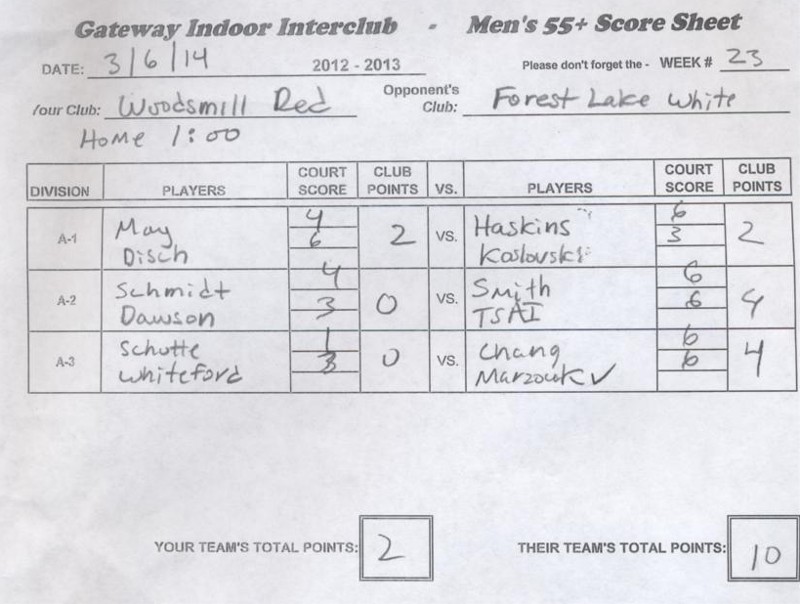 Gateway Indoor Interclub - Men's 55+ Score Sheet
DATE: 3/6/14 2012 - 2013 Please don't forget the - WEEK # 23
Your Club: Woodsmill Red Opponent's Club: Forest Lake White
Home 1:00
DIVISION PLAYERS COURT SCORE CLUB POINTS VS. PLAYERS COURT SCORE CLUB POINTS
A-1 May 4 2 VS. Haskins 6 2
Disch 6 Koslovski 3
A-2 Schmidt 4 0 VS. Smith 6 4
Dawson 3 TSAI 6
A-3 Schutte 1 0 VS. Chang 6 4
Whiteford 3 Marzouk ✓ 6
YOUR TEAM'S TOTAL POINTS: 2 THEIR TEAM'S TOTAL POINTS: 10